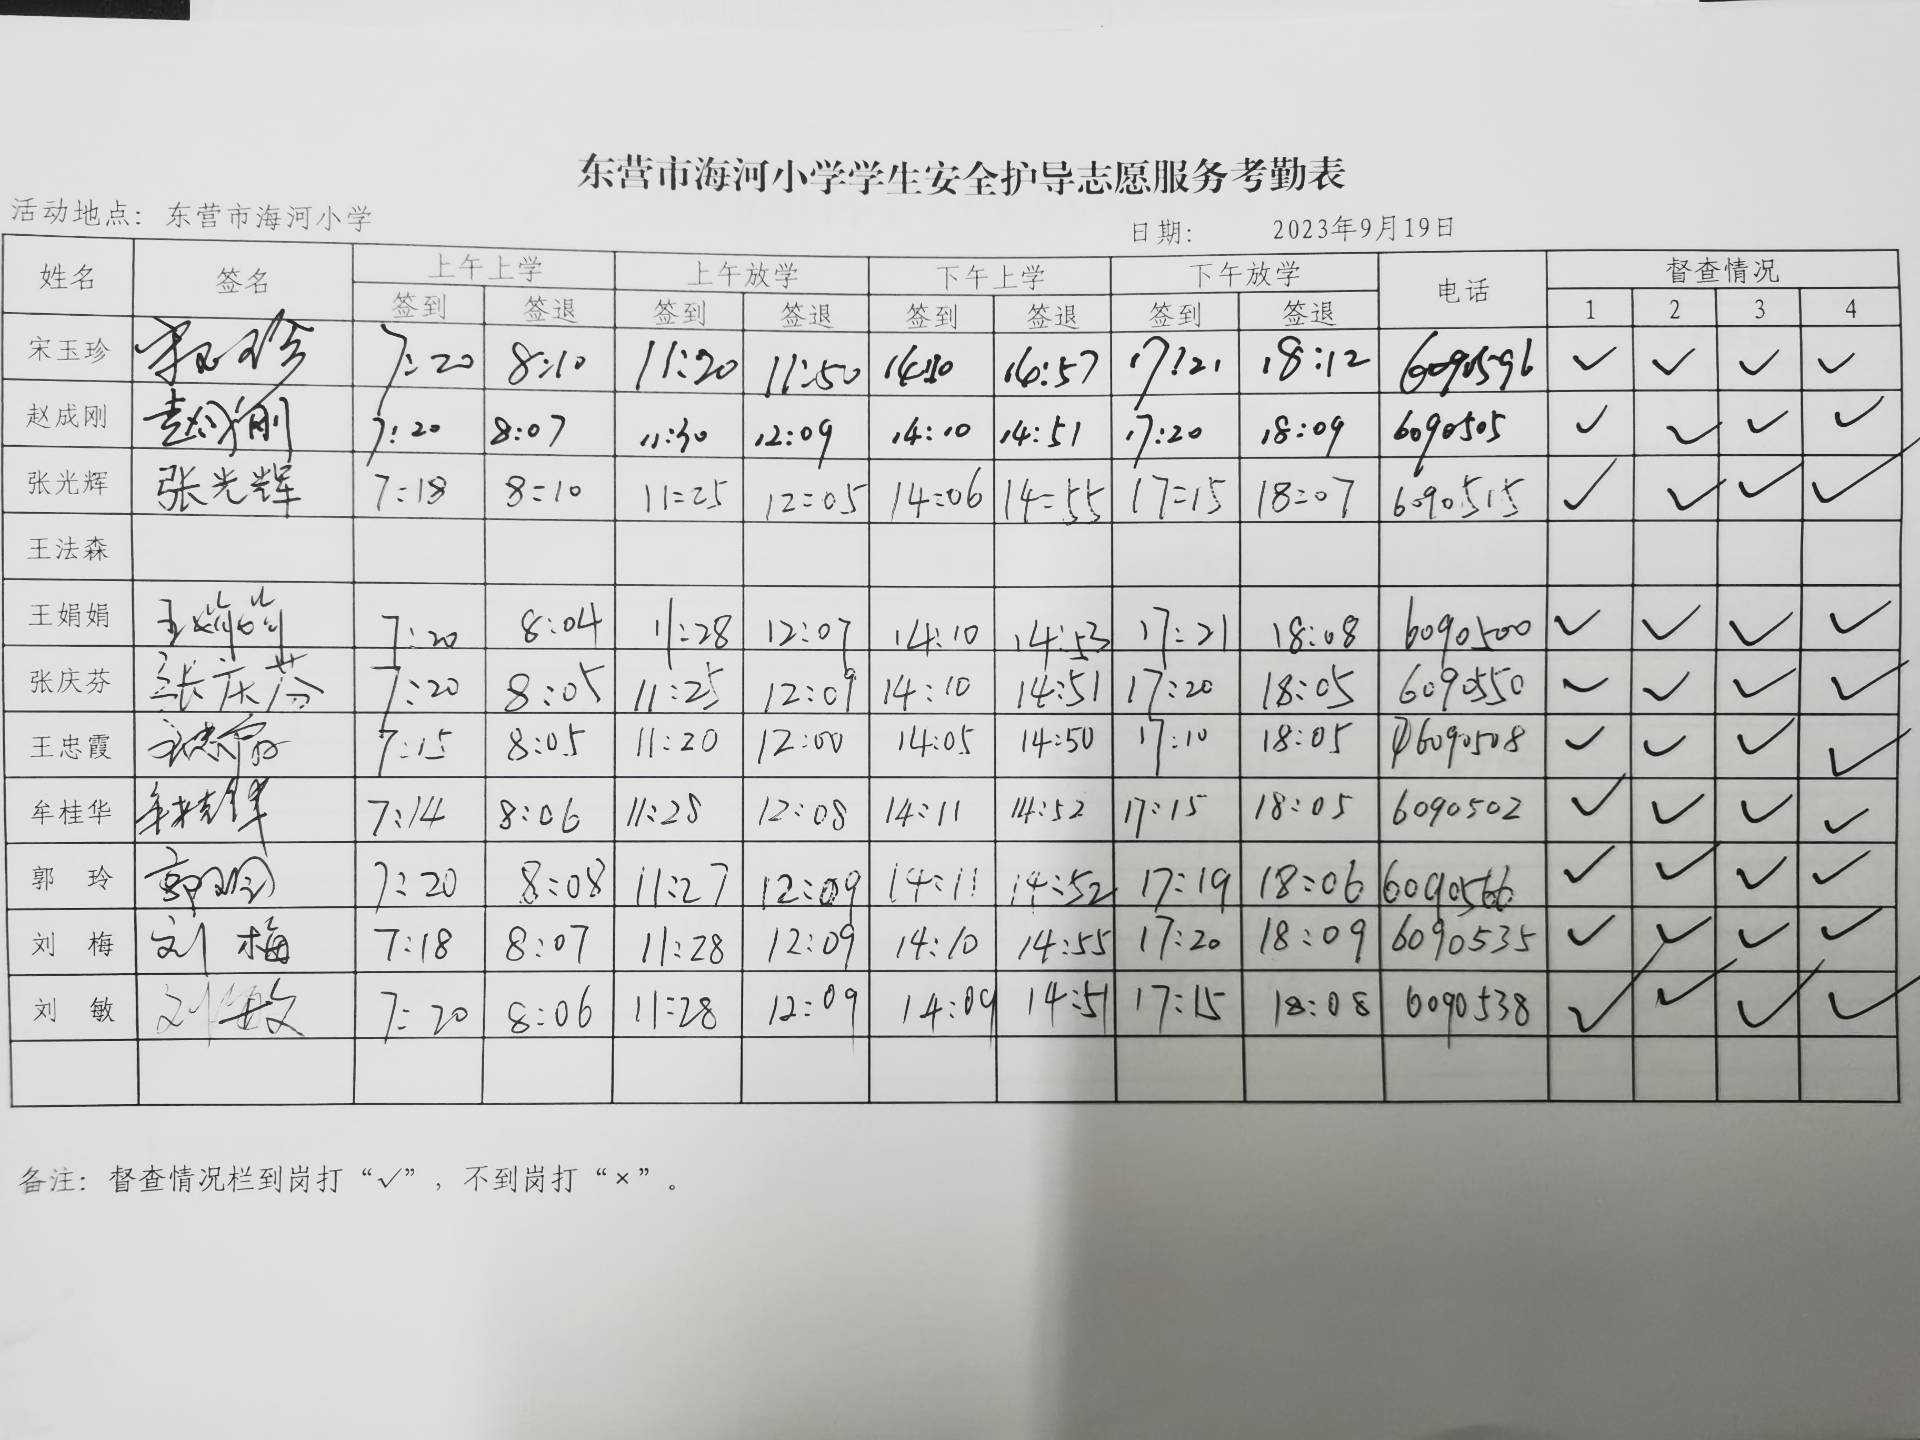 东营市海河小学学生安全护导志愿服务考勤表
活动地点：东营市海河小学 日期： 2023年9月19日
姓名 签名 上午上学 上午放学 下午上学 下午放学 电话 督查情况
签到 签退 签到 签退 签到 签退 签到 签退 1 2 3 4
宋玉珍 宋玉珍 7:20 8:10 11:20 11:50 14:10 14:57 17:21 18:12 6090596 ✓ ✓ ✓ ✓
赵成刚 赵成刚 7:20 8:07 11:30 12:09 14:10 14:51 17:20 18:09 6090505 ✓ ✓ ✓ ✓
张光辉 张光辉 7:18 8:10 11:25 12:05 14:06 14:55 17:15 18:07 6090515 ✓ ✓ ✓ ✓
王法森
王娟娟 王娟娟 7:20 8:04 11:28 12:07 14:10 14:53 17:21 18:08 6090500 ✓ ✓ ✓ ✓
张庆芬 张庆芬 7:20 8:05 11:25 12:09 14:10 14:51 17:20 18:05 6090550 ✓ ✓ ✓ ✓
王忠霞 王忠霞 7:15 8:05 11:20 12:00 14:05 14:50 17:10 18:05 6090508 ✓ ✓ ✓ ✓
牟桂华 牟桂华 7:14 8:06 11:28 12:08 14:11 14:52 17:15 18:05 6090502 ✓ ✓ ✓ ✓
郭 玲 郭玲 7:20 8:08 11:27 12:09 14:11 14:52 17:19 18:06 6090566 ✓ ✓ ✓ ✓
刘 梅 刘 梅 7:18 8:07 11:28 12:09 14:10 14:55 17:20 18:09 6090535 ✓ ✓ ✓ ✓
刘 敏 刘敏 7:20 8:06 11:28 12:09 14:09 14:51 17:15 18:08 6090538 ✓ ✓ ✓ ✓
备注：督查情况栏到岗打“✓”，不到岗打“×”。